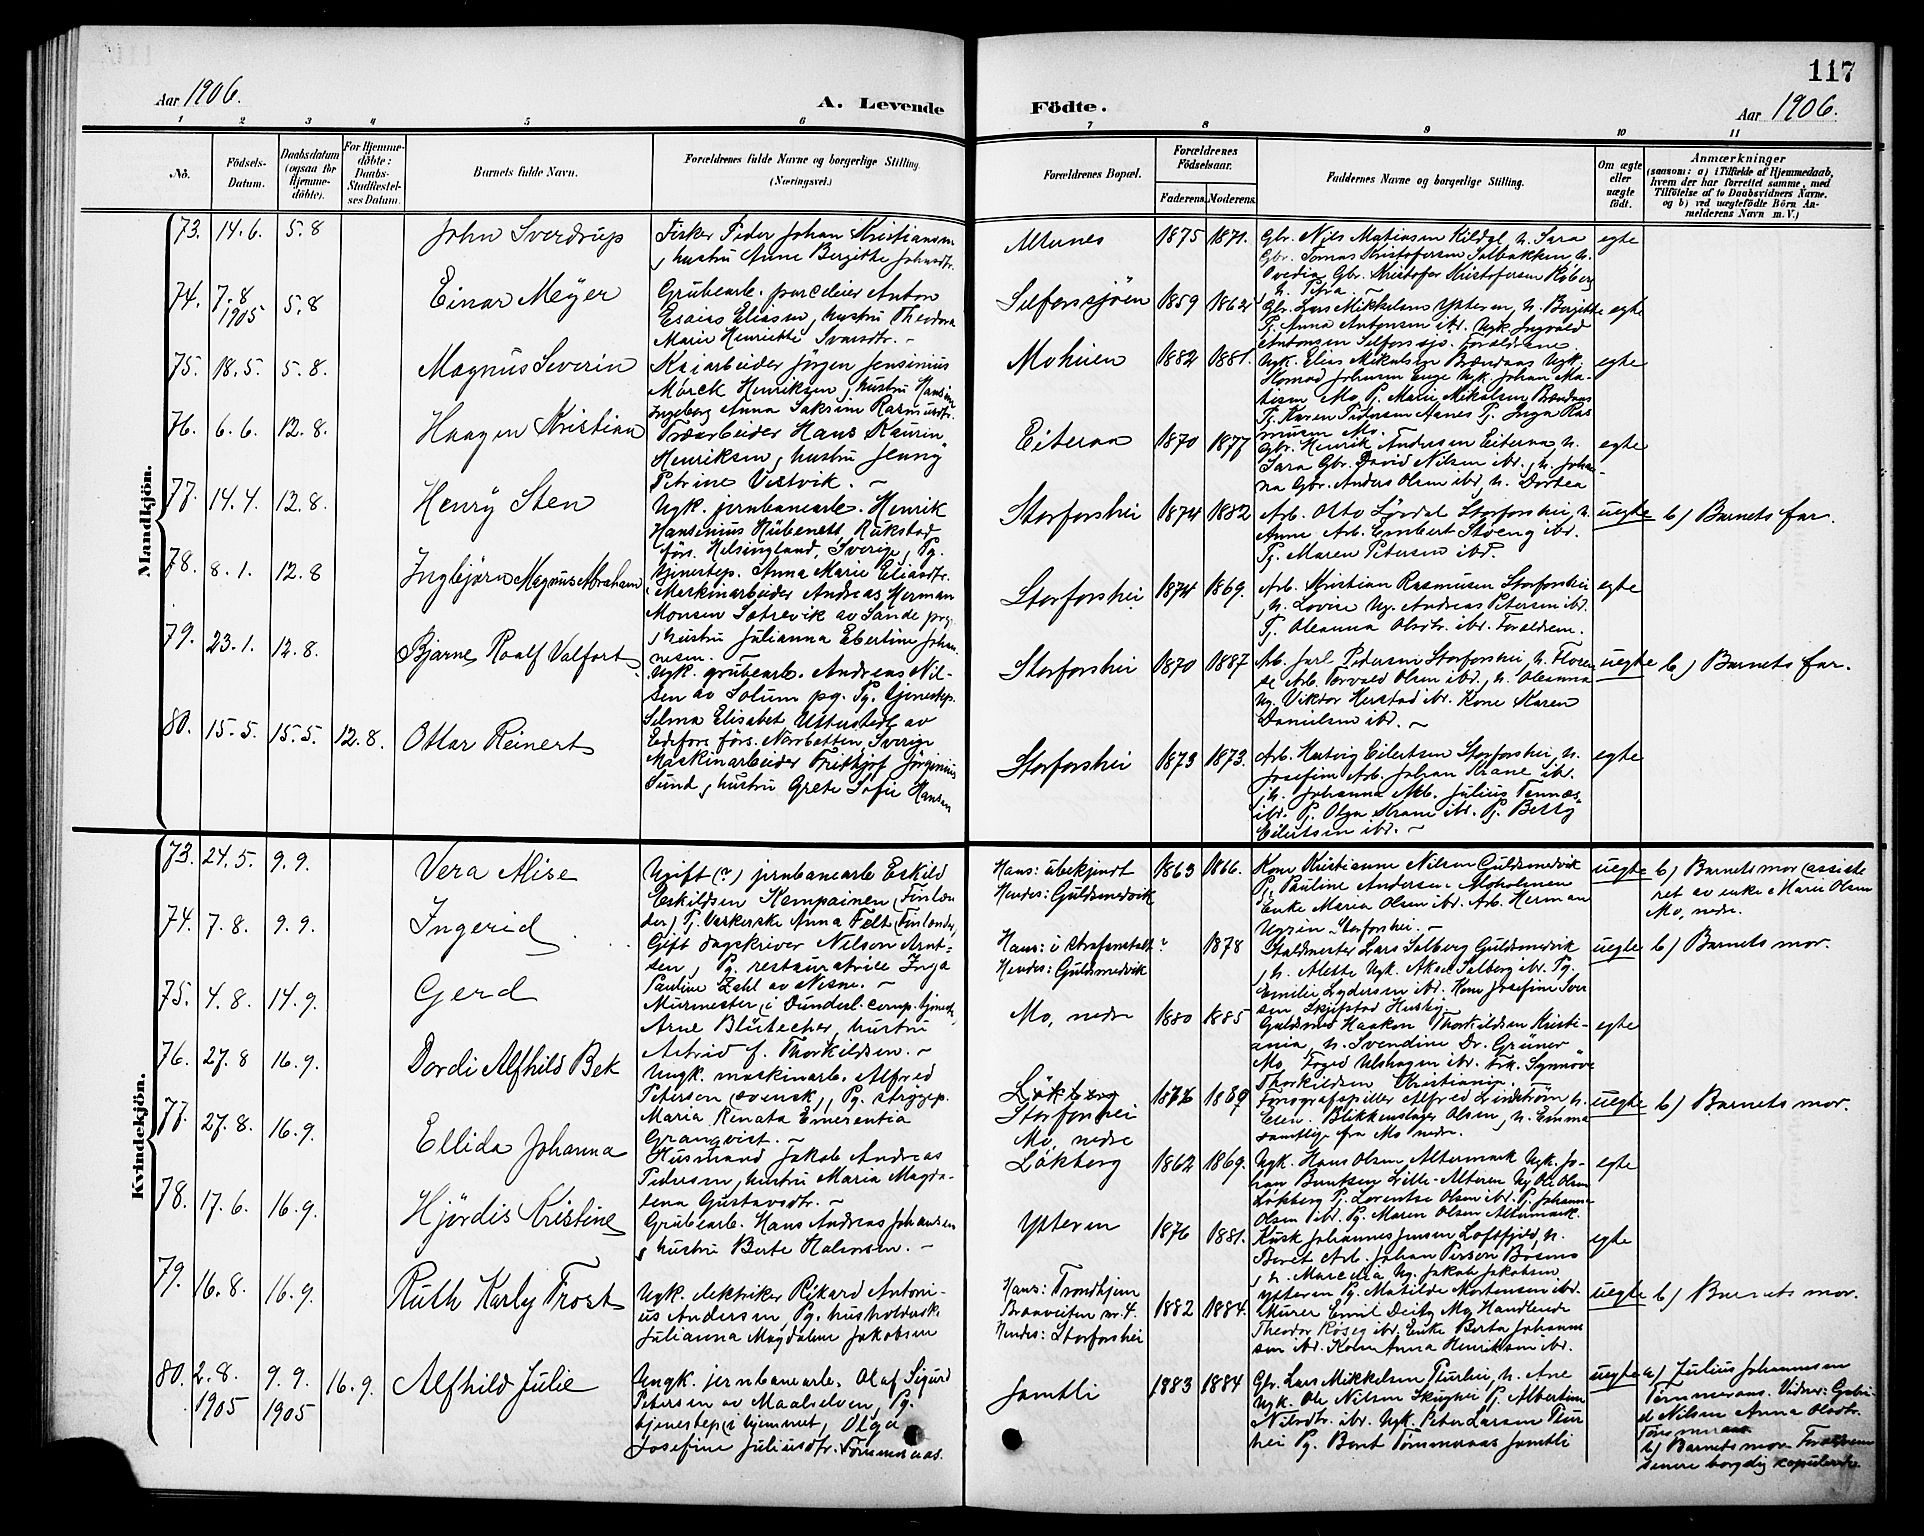 117
Aar 1906.
A. Levende
Födte.
Aar 1906.
1 2 3 4 5 6 7 8 9 10 11
No.
Födsels-Datum.
Daabsdatum (ogsaa for Hjemmedöbte).
For Hjemmedöbte: Daabs-Stadfæstelses Datum.
Barnets fulde Navn.
Forældrenes fulde Navne og borgerlige Stilling. (Næringsvei.)
Forældrenes Bopæl.
Forældrenes Födselsaar.
Faderens. Moderens.
Faddernes Navne og borgerlige Stilling.
Om ægte eller uægte födt.
Anmærkninger
(saasom: a) i Tilfælde af Hjemmedaab, hvem der har forrettet samme, med Tilföielse af to Daabsvidners Navne, og b) ved uægtefödte Börn Anmelderens Navn m. V.)
Mandkjön.
73. 14.6. 5.8 John Sverdrup
Fisker Peder Johan Kristiansen
, hustru Anne Bergitte Johnsdtr.
1875 1871.
Gbr. Nils Matiassen Kildal h. Sara
Gbr. Tomas Kristofersen h.
Ovedia Gbr. Kristofer Kristofersen
h. Petra. egte
74. 7.8 1905 5.8 Einar Meyer
Grubearb. parceleier Anton
Esaias Eliassen, hustru Theodora
Marie Henriette Ivarsdtr. –
Selforssjöen 1859 1862
Gbr. Lars Mikkelsen Ytteren, h. Bergitte
Pj. Anna Antonsen ibd. Ugk. Ingvald
Antonsen Selforssjö. Forældrene. egte
75. 18.5. 5.8. Magnus Severin
Kaiarbeider Jörgen Jensenius
Mörck Henriksen, hustru
Ingeborg Anna Rasmusdtr.
1882 1881.
Ugk. Elias Mikalsen Ugk.
Johansen Ugk. Johan Matisen
Mo Pj. Marie Mikalsen
Pj. Karen Pedersen Pj. Inga Rasmusen
Mo. egte
76. 6.6. 12.8. Haagen Kristian
Træarbeider Hans Kaurin
Henriksen, hustru Jenny
Petrine Vestvik. –
Eiteraa 1870 1877
Gbr. Henrik Andersen Eiteraa h.
Sara Gbr. David Nilsen ibd., h. Johanna
Gbr. Anders Olsen ibd, h. Dortea egte
77. 14.4. 12.8. Henry Sten
Ugk. jernbanearb. Henrik
Hansinius
förs. Helsingland, Sverige, Pg.
tjenestep. Anna Marie Eliasdtr.
Storforshei 1874 1882
Arb. Otto Storforshei, h.
Anne Arb. Embert ibd.
Pj. Maren Petersen ibd.
uegte b) Barnets far.
78. 8.1. 12.8 Ingbjörn Magnus Abraham
Maskinarbeider Andreas Herman
Monsen Sætrevik av Sande prg.
, hustru Julianna Ebertine Johannesen.
Storforshei 1874 1869.
Arb. Kristian Rasmusen Storforshei
, h. Lovise Ug. Andreas Petersen ibd.
Pj. Oleanna Olsdtr. ibd. Forældrene. egte
79. 23.1. 12.8. Bjarne Roalf Valfort
Ugk. grubearb. Andreas Nilsen
av Solum pg. Pg. tjenestep.
Selma Elisabet av
Edefors förs. Norrbotten, Sverige
Storforshei 1870 1887
Arb. Jarl Pedersen Storforshei, h.
Arb. Torvald Olsen ibd., h. Oleanna
Ug. Viktor ibd. Kone Karen
Danielsen ibd. –
uegte b) Barnets far.
80. 15.5. 15.5. 12.8. Ottar Reinert
Maskinarbeider Fridtjof Jörginius
Sund, hustru Grete Sofie Hansen
Storforshei 1873 1873.
Arb. Hartvig Eilertsen Storforshei, h.
Josefine Arb. Johan Krane ibd.
, h. Johanna Arb. Julius Tennes
ibd. Pj. Olga Krane ibd. Pj. Betty
Eilertsen ibd. – egte
Kvindekjön.
73. 24.5. 9.9. Vera Alise
Ugift (?) jernbanearb Eskild
Eskildsen Kempainen (Finlænder)
Pj. Anna Felt (Finlænder)
Hans: ubekjendt
Hendes: Guldsmedvik 1863 1866.
Kone Kristianne Nilsen Guldsmedvik
Pj. Pauline Andersen Moholmen
Enke Maria Olsen ibd. Arb. Herman
Storforshei. –
uegte b) Barnets mor (assisteret
av enke Marie Olsen
Mo, nedre.
74. 7.8. 9.9. Ingerid
Gift dagskriver Nilson Arntsen,
Pg. restauratrice Inga
Pauline Zahl av Nesne. –
Hans: i strafanstalt ?
Hendes: Guldsmedvik 1878
Staldmester Lars Solberg Guldsmedvik
, h. Alette Ugk. Aksel Solberg ibd. Pg.
Emilie Lydersen ibd. Kone Josefine Iversen
uegte b) Barnets mor.
75. 4.8. 14.9. Gerd
Murmester i Dunderl. comp. tjeneste,
Arne Blütecher, hustru
Astrid f. Thorkildsen. –
Mo, nedre 1880 1885
Guldsmed Haakon Thorkildsen Kristiania,
h. Svendine Dr. Grüner
Mo, Foged Ulshagen ibd. Frk. Synnöve
Thorkildsen Kristiania. – egte
76. 27.8 16.9. Dordi Alfhild Bek
Ungk. maskinarb. Alfred
Peterson (svensk), Pg. strygep.
Maria Renata Emerentia
Granqvist. –
Storforshei
Mo, nedre 1869
Fonografspiller Alfred Lindström h.
Elen. Blikkenslager Olsen, h. Emma
samtlige fra Mo nedre.
uegte b) Barnets mor.
77. 27.8. 16.9. Ellida Johanna
Husmand Jakob Andreas
Pedersen, hustru Maria Magdalena
Gustavsdtr. –
Lökberg 1862 1869.
Ugk. Hans Olsen Altermark Ugk. Johan
Lille-Alteren Ug Ole Olsen
Lökberg Pj. Lorentse Olsen ibd. Pj. Johanna
Olsen ibd. Pg. Maren Olsen Altermark. egte
78. 17.6. 16.9. Hjördis Kristine
Grubearb. Hans Andreas Johansen
, hustru Berte Halvorsen. –
Ytteren 1876 1881.
Kusk Johannes Jensen Loftfjeld, h.
Beret Arb. Johan Person
, h. Ug. Jakob Jakobsen
Ytteren Pg. Matilde Mortensen ibd. egte
79. 16.8. 16.9. Ruth Karly Trost
Ugk. elektriker Rikard Antonius
Andersen, Pg. husholderske
Julianna Magdalene Jakobsen
Hans: Trondhjem
nr. 4.
Hendes: Storforshei 1882 1884.
Murer Emil Handlende
Theodor ibd. Enke Berta Johannesen
ibd. Kone Anna Henriksen ibd.
uegte b) Barnets mor.
80. 2.8. 1905 9.9. 1905 16.9. Alfhild Julie
Ungk. jernbanearb. Olaf Sigurd
Petersen av Maalselven, Pg.
tjenestep. (i hjemmet) Olga
Josefine Juliusdtr. Tömmeraas.
Jamtli 1883 1884
Gbr. Lars Mikkelsen h. Ane
Ugk. Ole Nilsen Pj. Albertine
Nilsdtr. ibd. Ugk. Peter Larsen
Pg. Berit Tömmeraas Jamtli
uegte a) Julius Johannesen
Tömmeraas. Vidner:
Nilsen Anna Olsdtr.
b) Barnets mor
senere